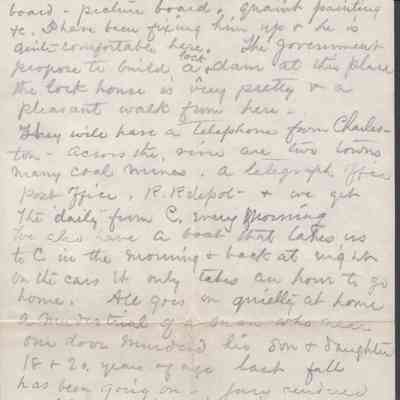 board - picture board, quaint painting
&c. I have been fixing him up & he is
quite comfortable here. The government
propose to build a lock & dam at this place
the lock house is very pretty & a
pleasant walk from here -
They will have a telephone from Charles-
ton - across the river are two towns
many coal mines. a telegraph office
Post Office, R.R depot - & we get
The daily from C. every morning
We also have a boat that takes us
to C in the morning & back at night
on the cars it only takes an hour to go
home. All goes on quietly at home
a murder trial of a man who
one door murdered his son & daughter
18 & 20 years of age last fall
has been going on - jury rendered